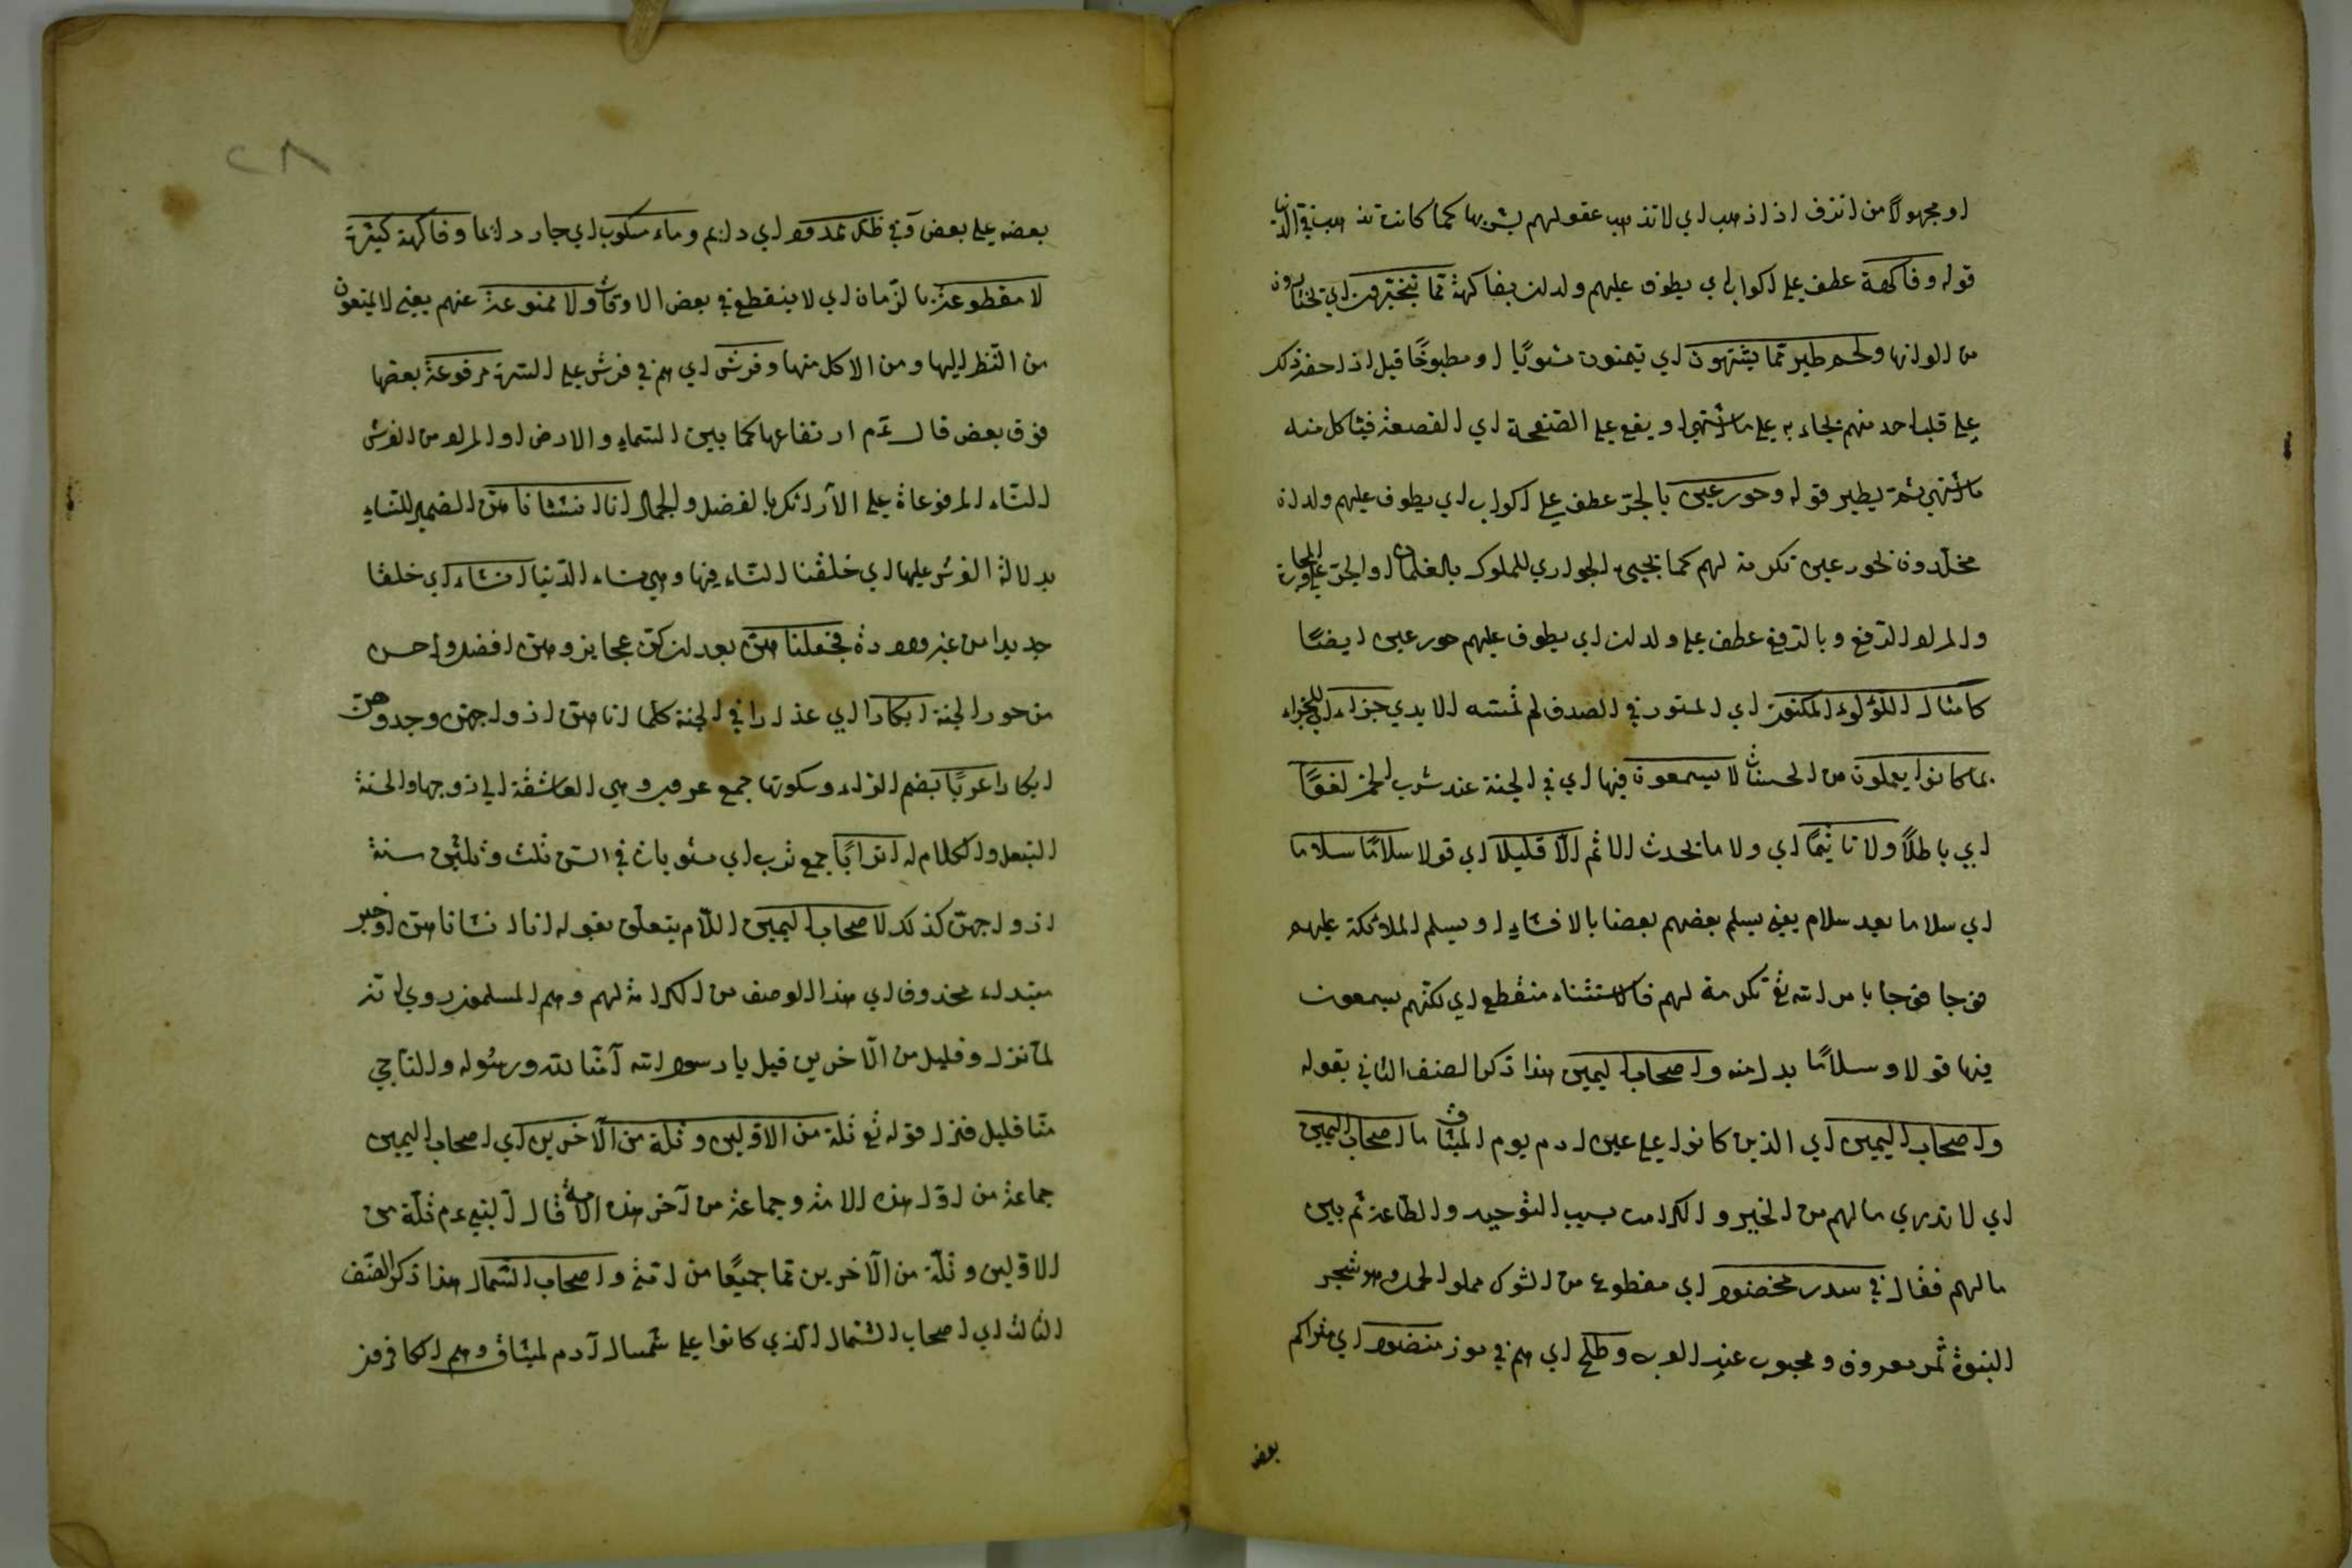 او مجهولا من انزف اذا ذهب اي لا تذهب عقولهم بشربها كما كانت تذهب في الدنيا
قوله وفاكهة عطف على اكواب اي يطوف عليهم ولدان بفاكهة مما يتخيرون اي يختارون
من الوانها ولحم طير مما يشتهون اي يتمنون مشويا او مطبوخا قيل اذا حضر ذلك
على قلب احد منهم يجاء به على ما اشتهى او يقع على الصفحة اي القصعة فياكل منه
ما اشتهى ثمة يطير قوله وحور عين بالجر عطف على اكواب اي يطوف عليهم ولدان
مخلدون بحور عين تكرمة لهم كما يجيئ الجواري للملوك بالغلمان او الجر على المجاورة
والمراد الرفع وبالرفع عطف على ولدان اي يطوف عليهم حور عين ايضا
كامثال اللؤلوء المكنون اي المستور في الصدف لم تمسه الايدي جزاء اي للجزاء
بما كانوا يعملون من الحسنات لا يسمعون فيها اي في الجنة عند شرب الخمر لغوا
اي باطلا ولا تاثيما اي ولا ما يحدث الاثم الا قليلا اي قولا سلاما سلاما
اي سلاما بعد سلام يعني يسلم بعضهم بعضا بالافشاء او يسلم الملائكة عليهم
فوجا فوجا بامر الله تع تكرمة لهم فالاستثناء منقطع اي لكنهم يسمعون
فيها قولا وسلاما بدل منه واصحاب اليمين هذا ذكر الصنف الثاني بقوله
واصحاب اليمين اي الذين كانوا على عين ادم يوم الميثاق ما اصحاب اليمين
اي لا تدري ما لهم من الخير والكرامت بسبب التوحيد والطاعة ثم بين
ما لهم فقال في سدر مخضود اي مقطوع من الشوك مملو الحمل وهو شجر
النبوة ثمر معروف ومحبوب عند العرب وطلح اي هم في موز منضود اي متراكم
بعض
٢٨
بعضه على بعض وفي ظل ممدود اي دايم وماء مسكوب اي جار دائما وفاكهة كثيرة
لا مقطوعة بالزمان اي لا ينقطع في بعض الاوقات ولا ممنوعة عنهم يعني لا يمنعون
من النظر اليها ومن الاكل منها وفرش اي هم في فرش على السرر مرفوعة بعضها
فوق بعض قال عم ارتفاعها كما بين السماء والارض او المراد من الفرش
النساء المرفوعاة على الارائك بالفضل والجمال انا انشئانا هن الضمير للنساء
بدلالة الفرش عليها اي خلقنا النساء فيها وهي نساء الدنيا انشاء اي خلقا
جديدا من غير ولادة فجعلنا هن بعد ان كن عجايز وهن افضل واحسن
من حور الجنة ابكارا اي عذارا في الجنة كلما اتاهن ازواجهن وجدوهن
ابكارا عربا بضم الراء وسكونها جمع عروب وهي العاشقة الى زوجها والحسنة
التبعل والكلام له اترابا جمع ترب اي مستويات في السن ثلث وثلثين سنة
ازواجهن كذلك لاصحاب اليمين اللام يتعلق بقوله انا انشانا هن او خبر
مبتداء محذوف اي هذا الوصف من الكرامة لهم وهم المسلمون روي انه
لما نزل وقليل من الآخرين قيل يا رسول الله آمنا بالله ورسوله والناجي
منا قليل فنزل قوله تع ثلة من الاولين وثلة من الآخرين اي اصحاب اليمين
جماعة من اول هذه الامة وجماعة من آخر هذه الامة قال النبي عم ثلة من
الاولين وثلة من الآخرين هما جميعا من امتي واصحاب الشمال هذا ذكر الصنف
الثالث اي اصحاب الشمال الذي كانوا على شمال آدم لميثاق وهم الكافرون